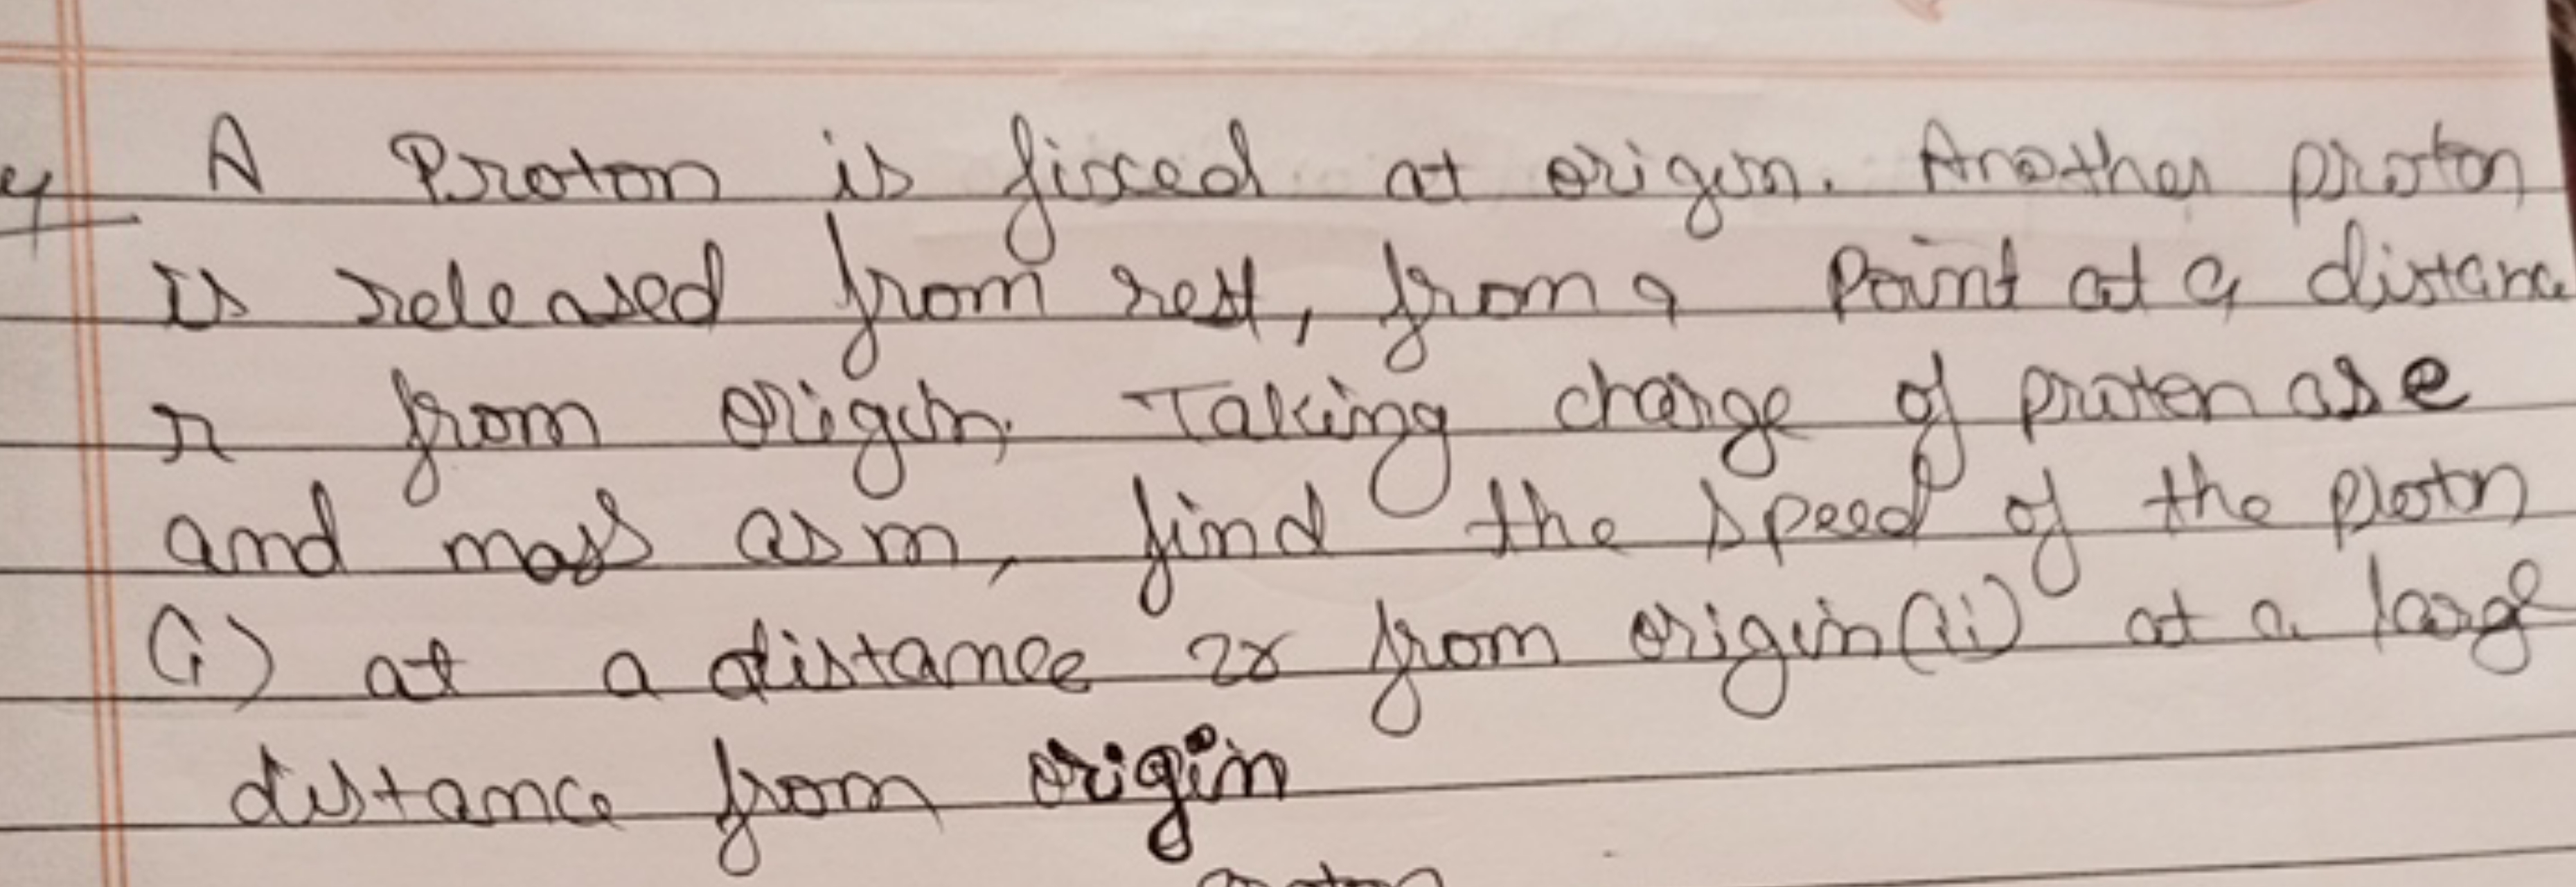 4 A Proton is fixed at origin. Another proton
is released from rest, from a Point at a distanc
r from origin. Taking charge of proton as e
and mass as m, find the speed of the ploton
(i) at a distance 2r from origin (ii) at a large
distance from origin